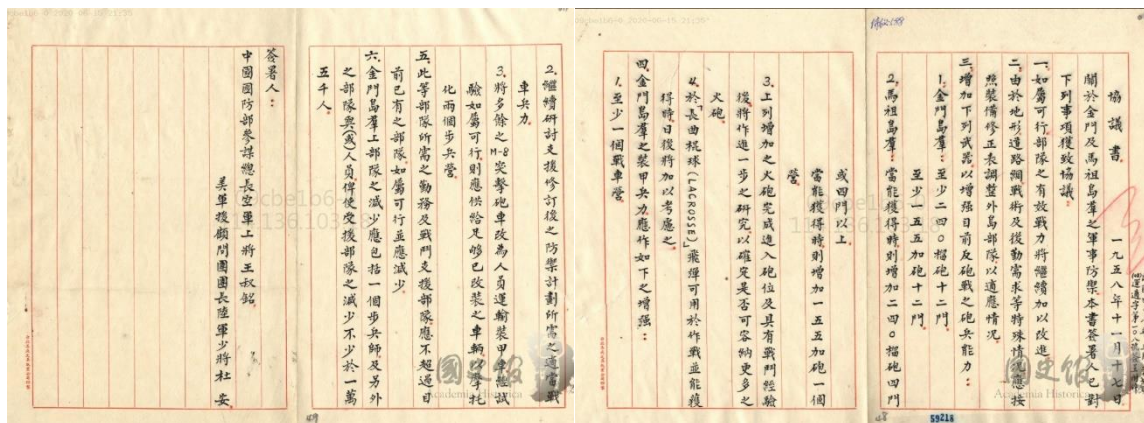 協議書 一九五八年十一月十七日
關於金門及馬祖島羣之軍事防禦本書簽署人已對
下列事項獲致協議：
一、如屬可行部隊之有效戰力將繼續加以改進
二、由於地形道路網戰術及後勤需求等特殊情況應按
照裝備修正表調整外島部隊以適應情況
三、增加下列武器以增強目前反砲戰之砲兵能力：
1.金門島羣：至少二四〇榴砲十二門
至少一五五加砲十二門
2.馬祖島羣：當能獲得時則增加二四〇榴砲四門
或四門以上
當能獲得時則增加一五五加砲一個
營
3.上列增加之火砲完成進入砲位及具有戰鬥經驗
後將作進一步之研究以確定是否可容納更多之
火砲
4.於「長曲棍球(LACROSSE)」飛彈可用於作戰並能獲
得時日後將加以考慮之
四、金門島羣之裝甲兵力應作如下之增強：
1.至少一個戰車營
48
59218
國史館
Academia Historica
2.繼續研討支援修訂後之防禦計劃所需之適當戰
車兵力
3.將多餘之M-8突擊砲車改為人員運輸裝甲車經試
驗如屬可行則應供給足够已改裝之車輛以摩托
化兩個步兵營
五、此等部隊所需之勤務及戰鬥支援部隊應不超過目
前已有之部隊如屬可行並應減少
六、金門島羣上部隊之減少應包括一個步兵師及另外
之部隊與(或)人員俾使受援部隊之減少不少於一萬
五千人
簽署人：
中國國防部參謀總長空軍上將王叔銘
美軍援顧問團團長陸軍少將杜安
49
國史館
Academia Historica